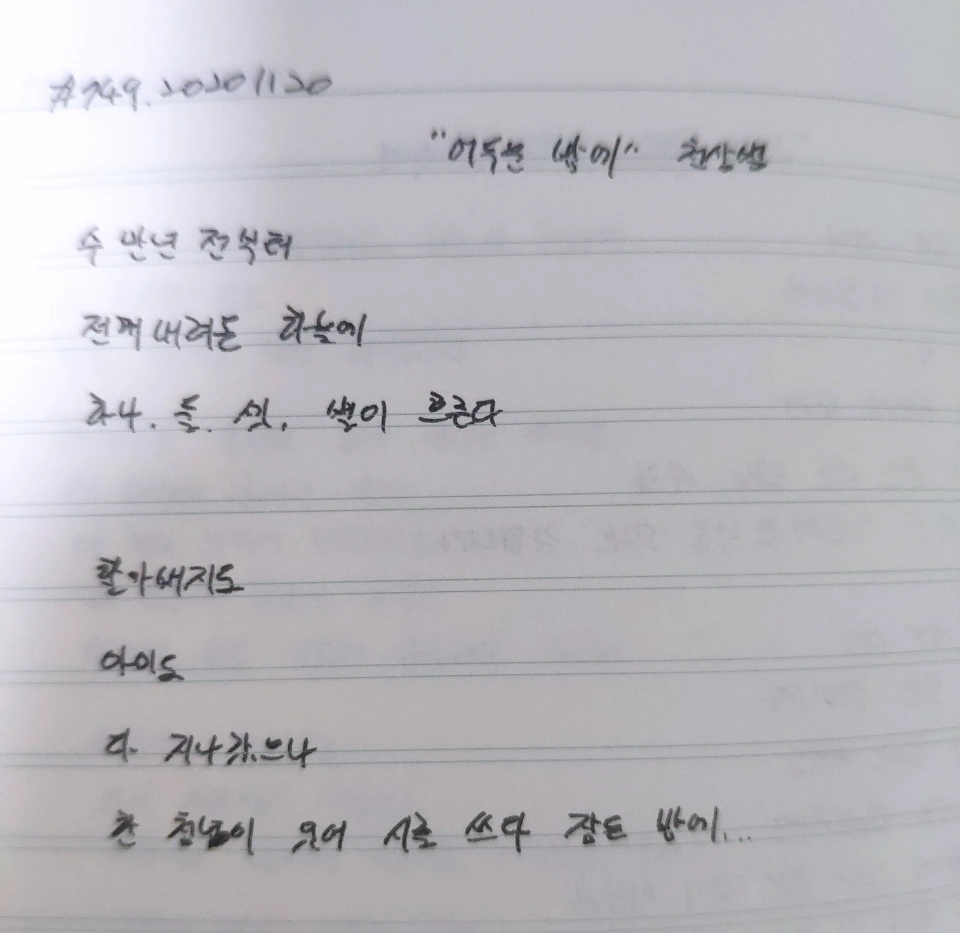 #749. 20201120
"어두운 밤에" 천상병
수 만년 전부터
전해 내려온 하늘에
하나. 둘. 셋. 별이 흐른다
할아버지도
아이도
다 지나갔으나
한 청년이 있어 시를 쓰다 잠든 밤에...